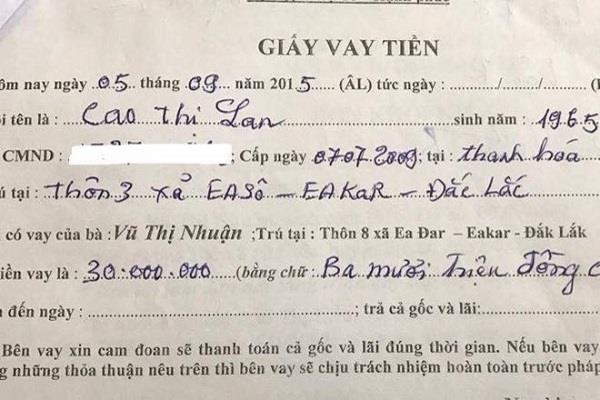 GIẤY VAY TIỀN
ôm nay ngày ..05.. tháng .09... năm 2015 (ÂL) tức ngày : ........../......./........(
i tên là : Cao Thị Lan sinh năm : 1965
CMND : ; Cấp ngày 07.07.2009; tại : thanh hóa
ú tại : thôn 3 xả EASô - EAKaR - Đắc Lắc
có vay của bà : Vũ Thị Nhuận ;Trú tại : Thôn 8 xã Ea Đar – Eakar - Đắk Lắk
iền vay là : 30.000.000 (bằng chữ : Ba mươi Triệu đồng c
đến ngày : ; trả cả gốc và lãi:
Bên vay xin cam đoan sẽ thanh toán cả gốc và lãi đúng thời gian. Nếu bên vay
g những thỏa thuận nêu trên thì bên vay sẽ chịu trách nhiệm hoàn toàn trước pháp